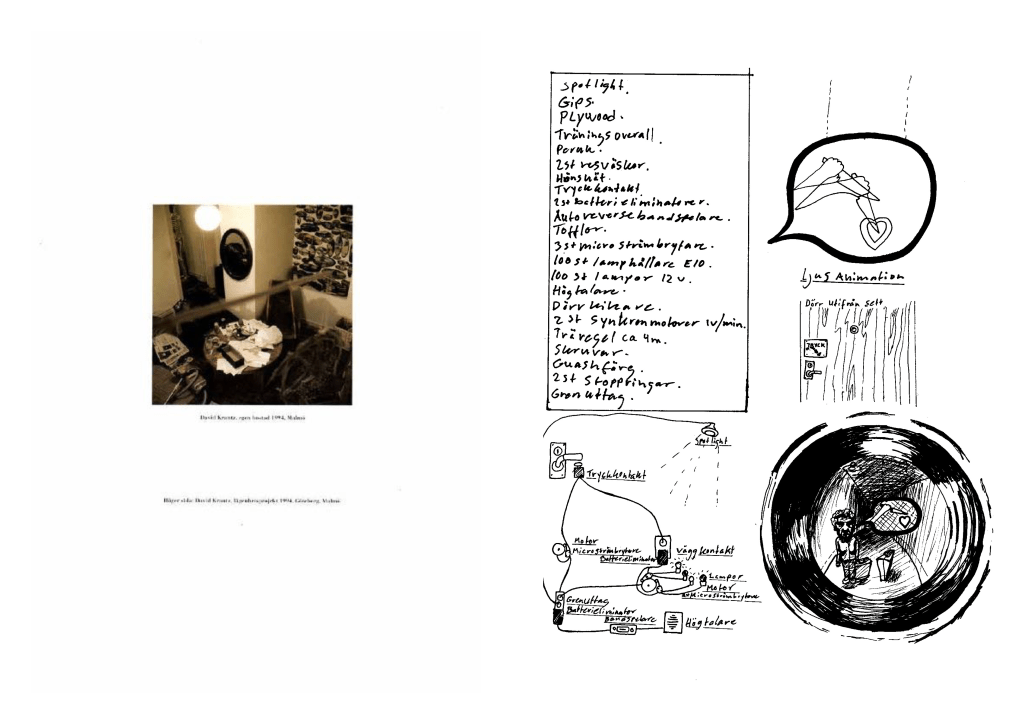 David Krantz, egen bostad 1994, Malmö
Höger sida: David Krantz, lägenhetsprojekt 1994, Göteborg, Malmö
Spotlight.
Gips.
PLywood.
Träningsoverall.
Peruk.
2st resväskor.
Hönsnät.
Tryckkontakt.
2st batterieliminatorer.
Autoreversebandspelare.
Tofflor.
3st micro strömbrytare.
100 st lamphållare E10.
100 st lampor 12 v.
Högtalare.
Dörrkikare.
2 st Synkronmotorer 1v/min.
Träregel ca 4m.
Skruvar.
Guashfärg.
2st Stoppringar.
Grenuttag.
Ljus Animation
Dörr utifrån sett
TRYCK
Spotlight
Tryckkontakt
Motor
Microströmbrytare
Batterieliminator
Väggkontakt
Lampor
Motor
Microströmbrytare
Grenuttag
Batterieliminator
Bandspelare
Högtalare